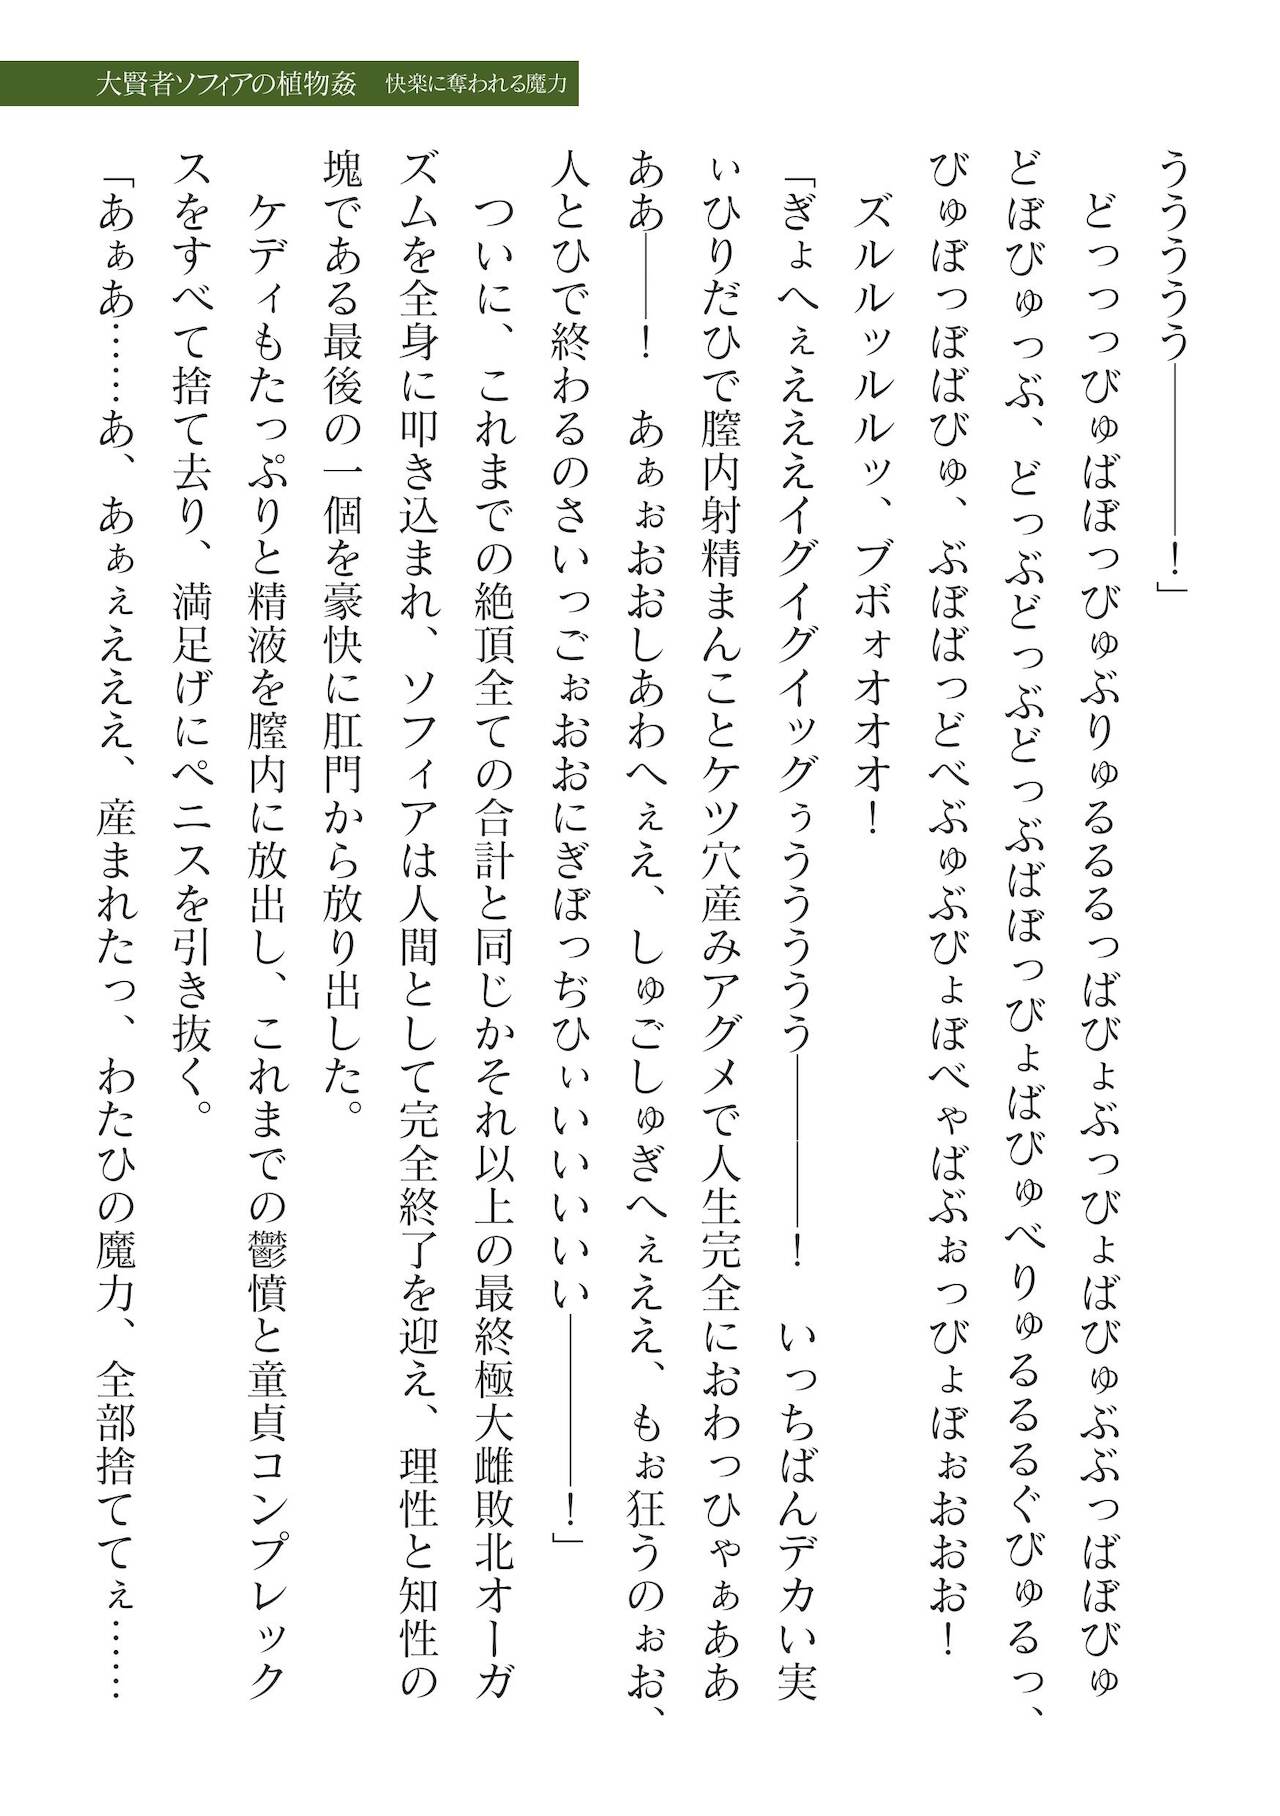 大賢者ソフィアの植物姦　快楽に奪われる魔力
ううううう――――！」
　どっっっびゅばぼっびゅぶりゅるるるっばびょぶっびょばびゅぶぶっばぼびゅ
どぼびゅっぶ、どっぶどっぶどっぶばぼっびょばびゅべりゅるるるぐびゅるっ、
びゅぼっぼばびゅ、ぶぼばっどべぶゅぶびょぼべゃばぶぉっびょぼぉおおお！
　ズルルッルルッ、ブボォオオオ！
「ぎょへぇえええイグイグイッグぅううううう――――！　いっちばんデカい実
ぃひりだひで膣内射精まんことケツ穴産みアグメで人生完全におわっひゃぁああ
ああ――！　あぁぉおおおしあわへぇえ、しゅごしゅぎへぇええ、もぉ狂うのぉお、
人とひで終わるのさいっごぉおおにぎぼっぢひぃいいいいい――――！」
　ついに、これまでの絶頂全ての合計と同じかそれ以上の最終極大雌敗北オーガ
ズムを全身に叩き込まれ、ソフィアは人間として完全終了を迎え、理性と知性の
塊である最後の一個を豪快に肛門から放り出した。
　ケディもたっぷりと精液を膣内に放出し、これまでの鬱憤と童貞コンプレック
スをすべて捨て去り、満足げにペニスを引き抜く。
「あぁあ……あ、あぁぇえええ、産まれたっ、わたひの魔力、全部捨ててぇ……